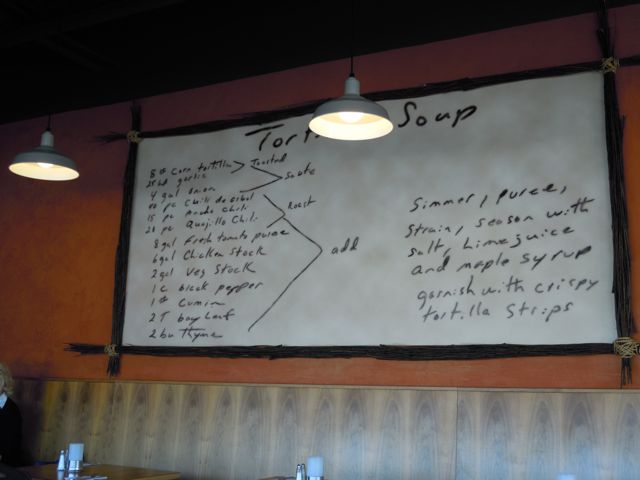 Tort Soup
8 # Corn tortillas Toasted
25 hd garlic
4 gal onion Saute
40 pc Chili de arbol
15 pc Ancho chili Roast
21 pc Quajillo Chili
8 gal Fresh tomato puree
6 gal Chicken Stock
2 gal Veg Stock
add
1 C black pepper
1 # Cumin
2 T bay leaf
2 bu Thyme
Simmer, puree,
Strain, season with
salt, Lime juice
and maple syrup
garnish with crispy
tortilla Strips